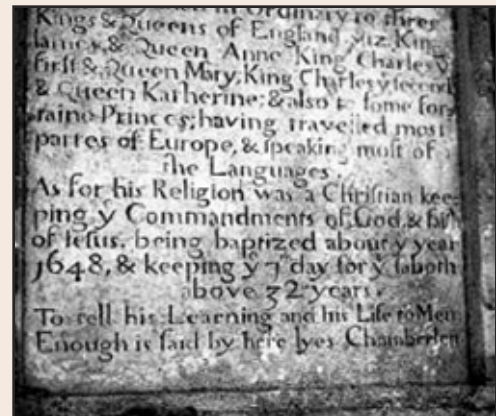 in Ordinary to three
Kings & Queens of England viz. King
Iames, & Queen Anne King Charles ẙ
first & Queen Mary, King Charles ẙ second
& Queen Katherine; & also to some for-
raine Princes; having travelled most
partes of Europe, & speaking most of
the Languages.
As for his Religion was a Christian kee-
ping ẙ Commandments of God, & faith
of Iesus, being baptized about ẙ year
1648, & keeping ẙ 7 day for ẙ saboth
above 32 years.
To tell his Learning and his Life to Men
Enough is said by here lyes Chamberlen